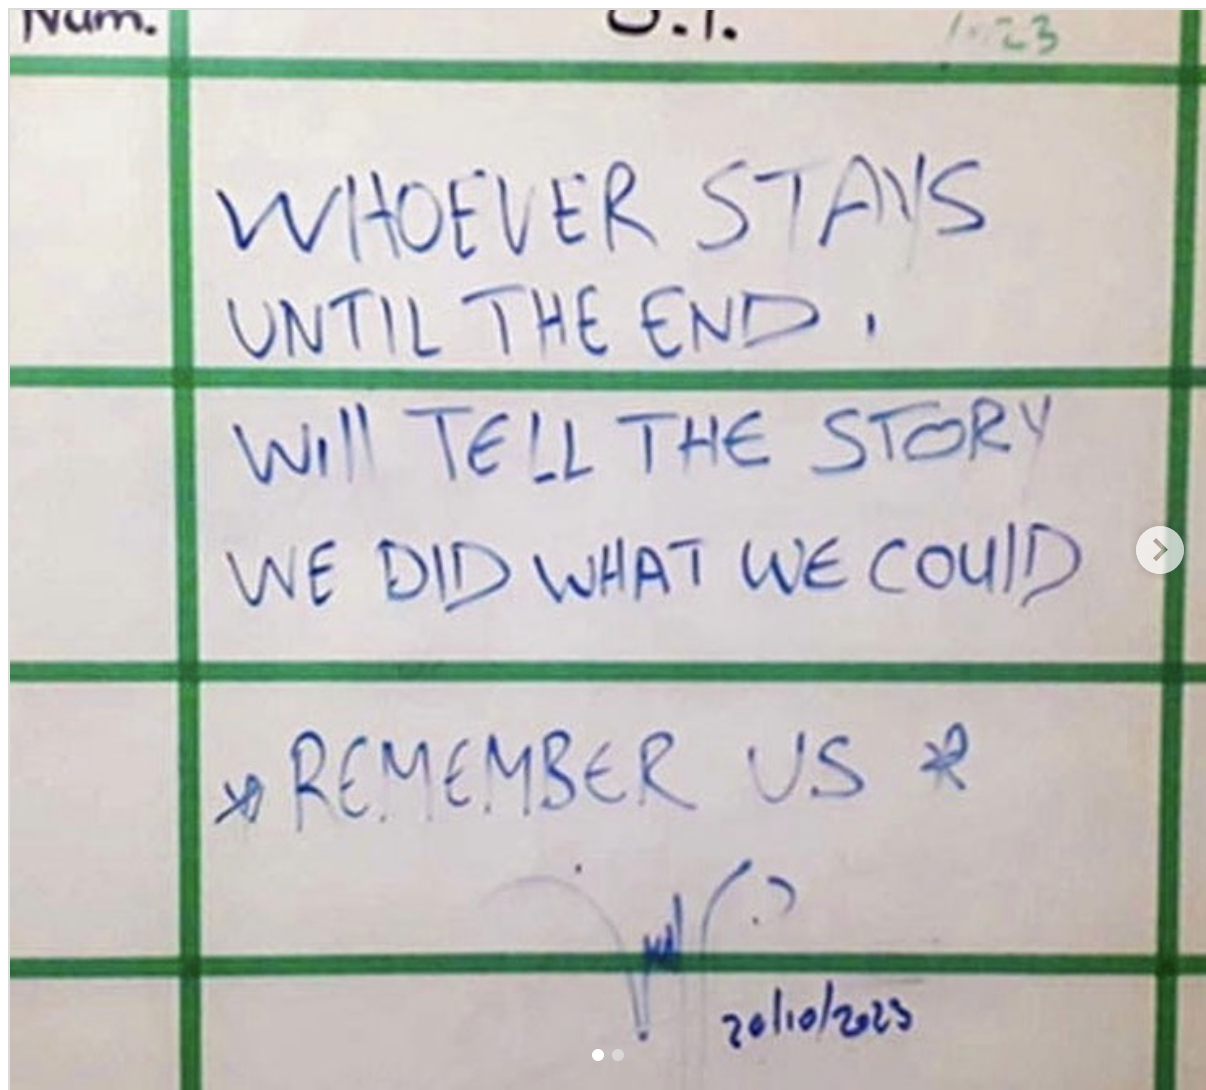 Num. O.T.
WHOEVER STAYS
UNTIL THE END.
Will TELL THE STORY
WE DID WHAT WE COUlD
*REMEMBER US *
20/10/2023